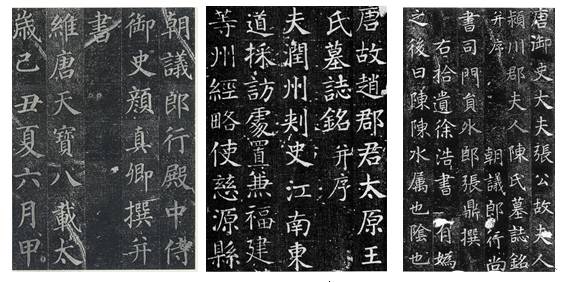 朝議郎行殿中侍
御史顏真卿撰并
書
維唐天寶八載太
歲己丑夏六月甲
唐故趙郡君太原王
氏墓誌銘并序
夫潤州刾史江南東
道採訪處置兼福建
等州經略使慈源縣
唐御史大夫張公故夫人
潁川郡夫人陳氏墓誌銘
并序 朝議郎行尚
書司門員外郎張鼎撰
右拾遺徐浩書 有媯
之後曰陳陳水屬也陰也